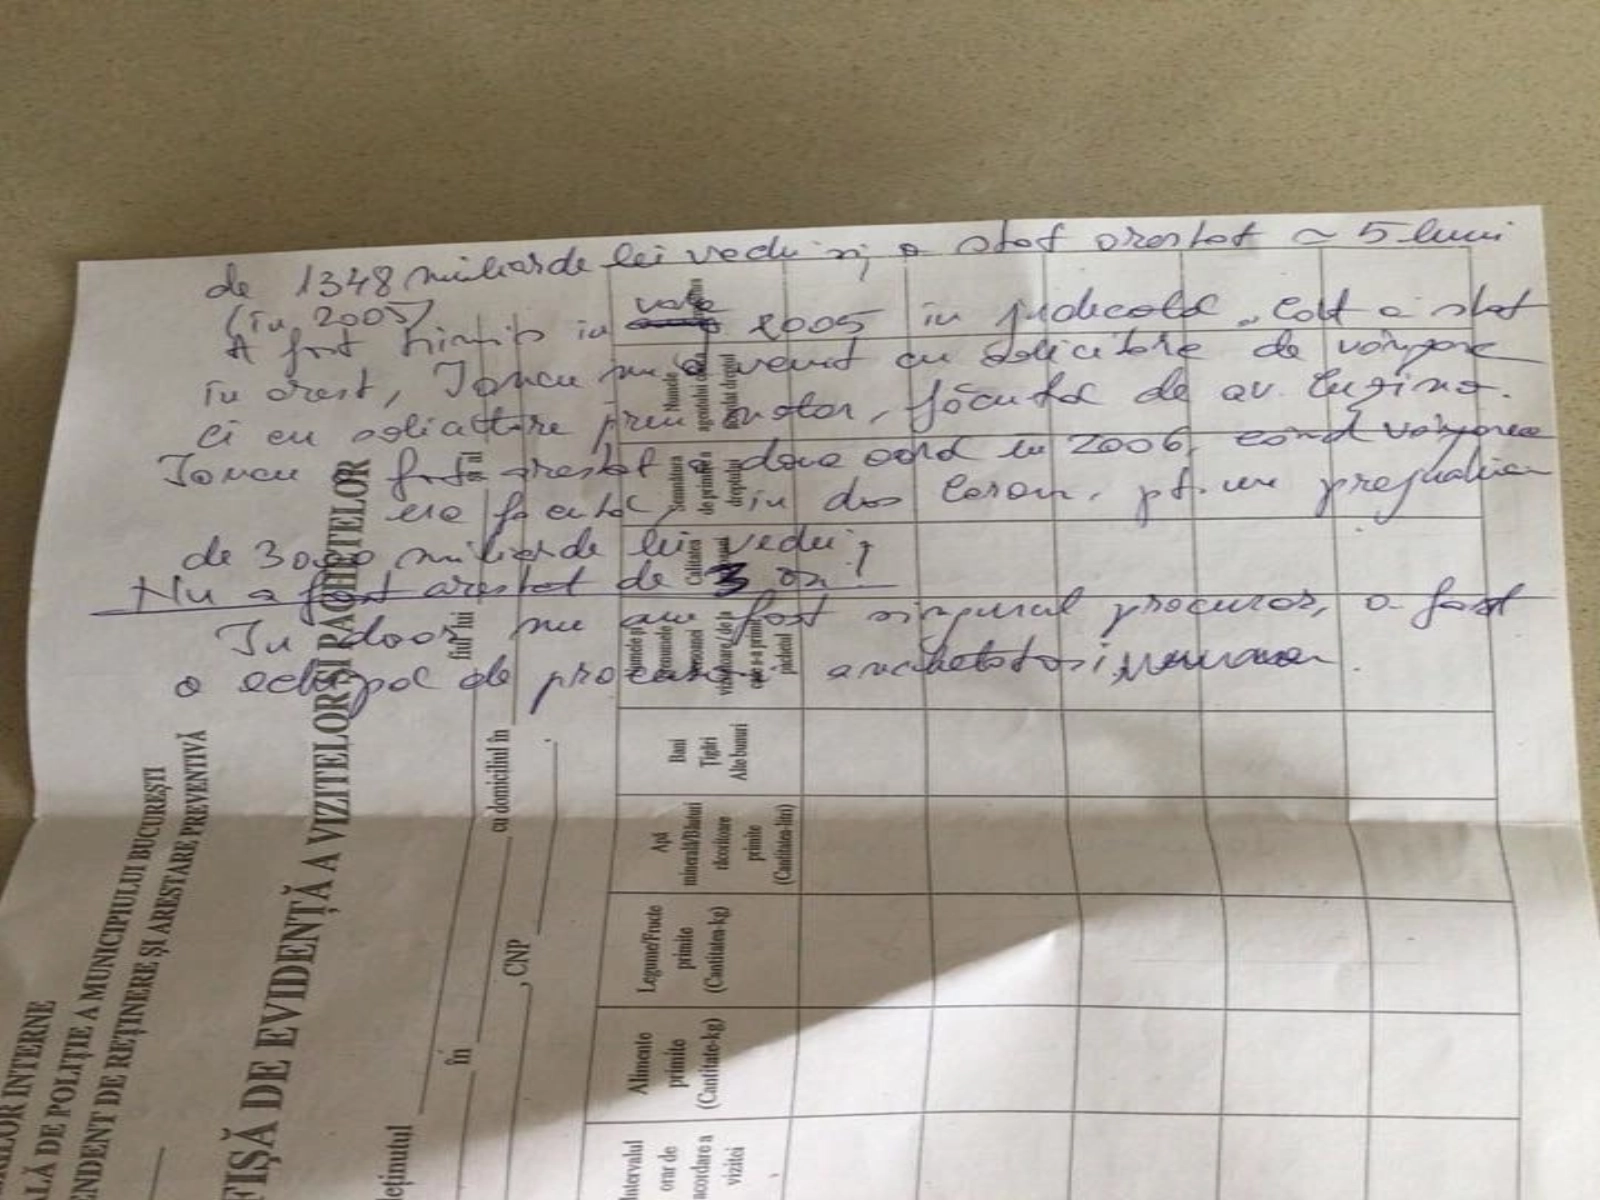 de 1348 miliarde lei vechi și a stat arestat ~ 5 luni
(în 2005)
A fost trimis in vara 2005 în judecată. Cât a stat
în arest, Iancu nu a venit cu solicitare de vânzare
ci cu solicitare prin notar, făcută de av.
Iancu a fost arestat a doua oară in 2006, când vânzarea
era facută, in dos pt. un prejudiciu
de 3000 miliarde lei vechi!
Nu a fost arestat de 3 ori!
In dosar nu am fost singurul procuror, a fost
o echipă de procurori anchetatori
RILOR INTERNE
ALĂ DE POLIȚIE A MUNICIPIULUI BUCUREȘTI
ENDENT DE REȚINERE ȘI ARESTARE PREVENTIVĂ
FIȘĂ DE EVIDENȚĂ A VIZITELOR ȘI PACHETELOR
eținutul
fiul lui
și al
în
cu domiciliul în
, CNP
Intervalul
orar de
acordare a
vizitei
Alimente
primite
(Cantitate-kg)
Legume/Fructe
primite
(Cantitatea-kg)
Apă
minerală/Băuturi
răcoritoare
primite
(Cantitatea-litri)
Bani
Țigări
Alte bunuri
Numele și
prenumele
persoanei
vizitatoare/ de la
care s-a primit
pachetul
Calitatea
Semnătura
de primire a
dreptului
Numele
agentului care
dreptul